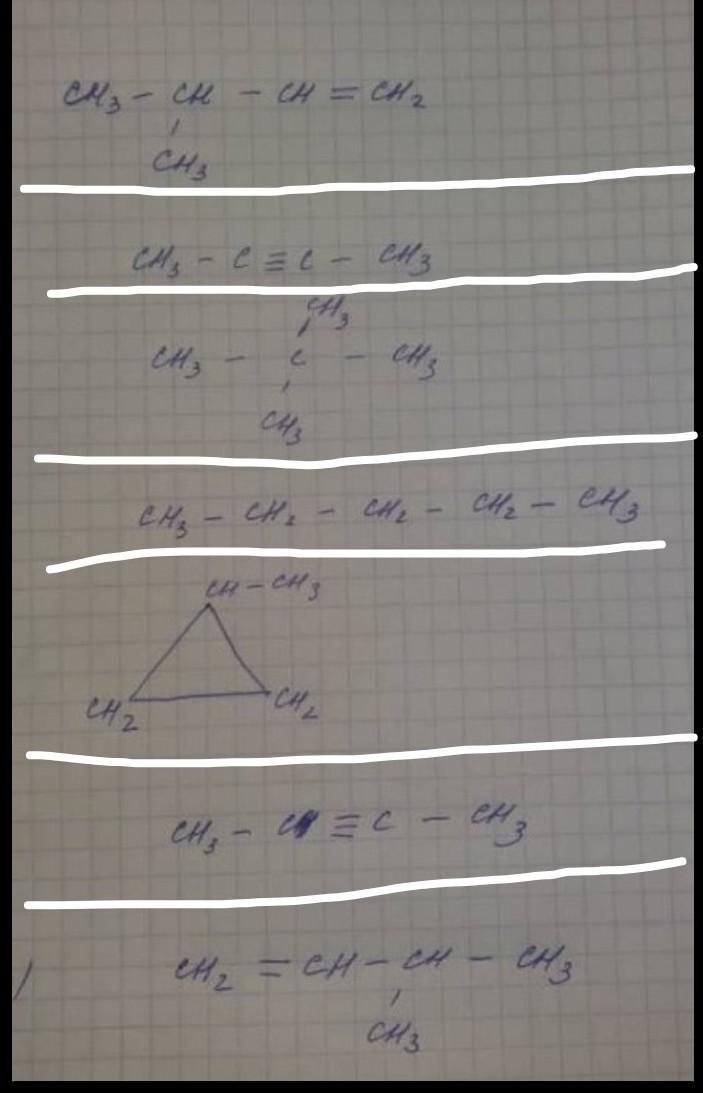 CH3 - CH - CH = CH2
CH3
CH3 - C ≡ C - CH3
CH3
CH3 - C - CH3
CH3
CH3 - CH2 - CH2 - CH2 - CH3
CH - CH3
CH2 CH2
CH3 - C ≡ C - CH3
CH2 = CH - CH - CH3
CH3